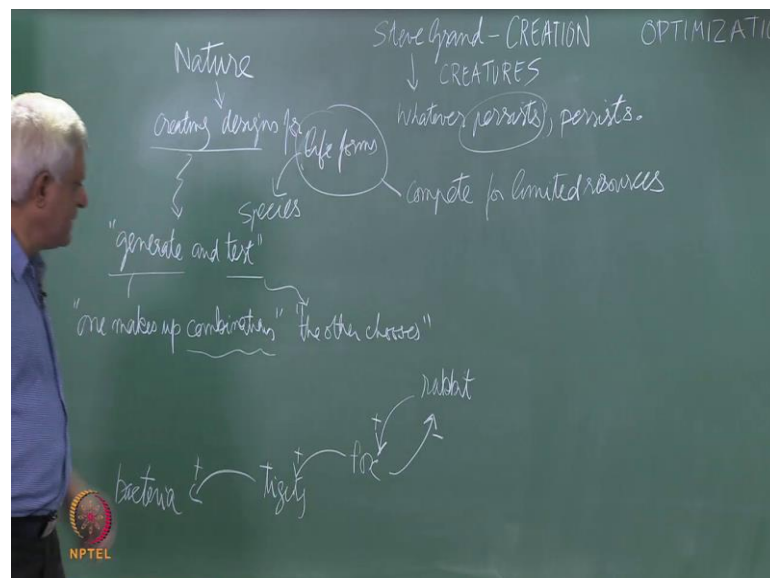 Nature
creating designs for
life forms
species
"generate and test"
"one makes up combinations" "the other chooses"
Steve Grand - CREATION
CREATURES
Whatever persists, persists.
compete for limited resources
OPTIMIZATIO
rabbit
+
-
fox
+
tigers
+
bacteria
NPTEL